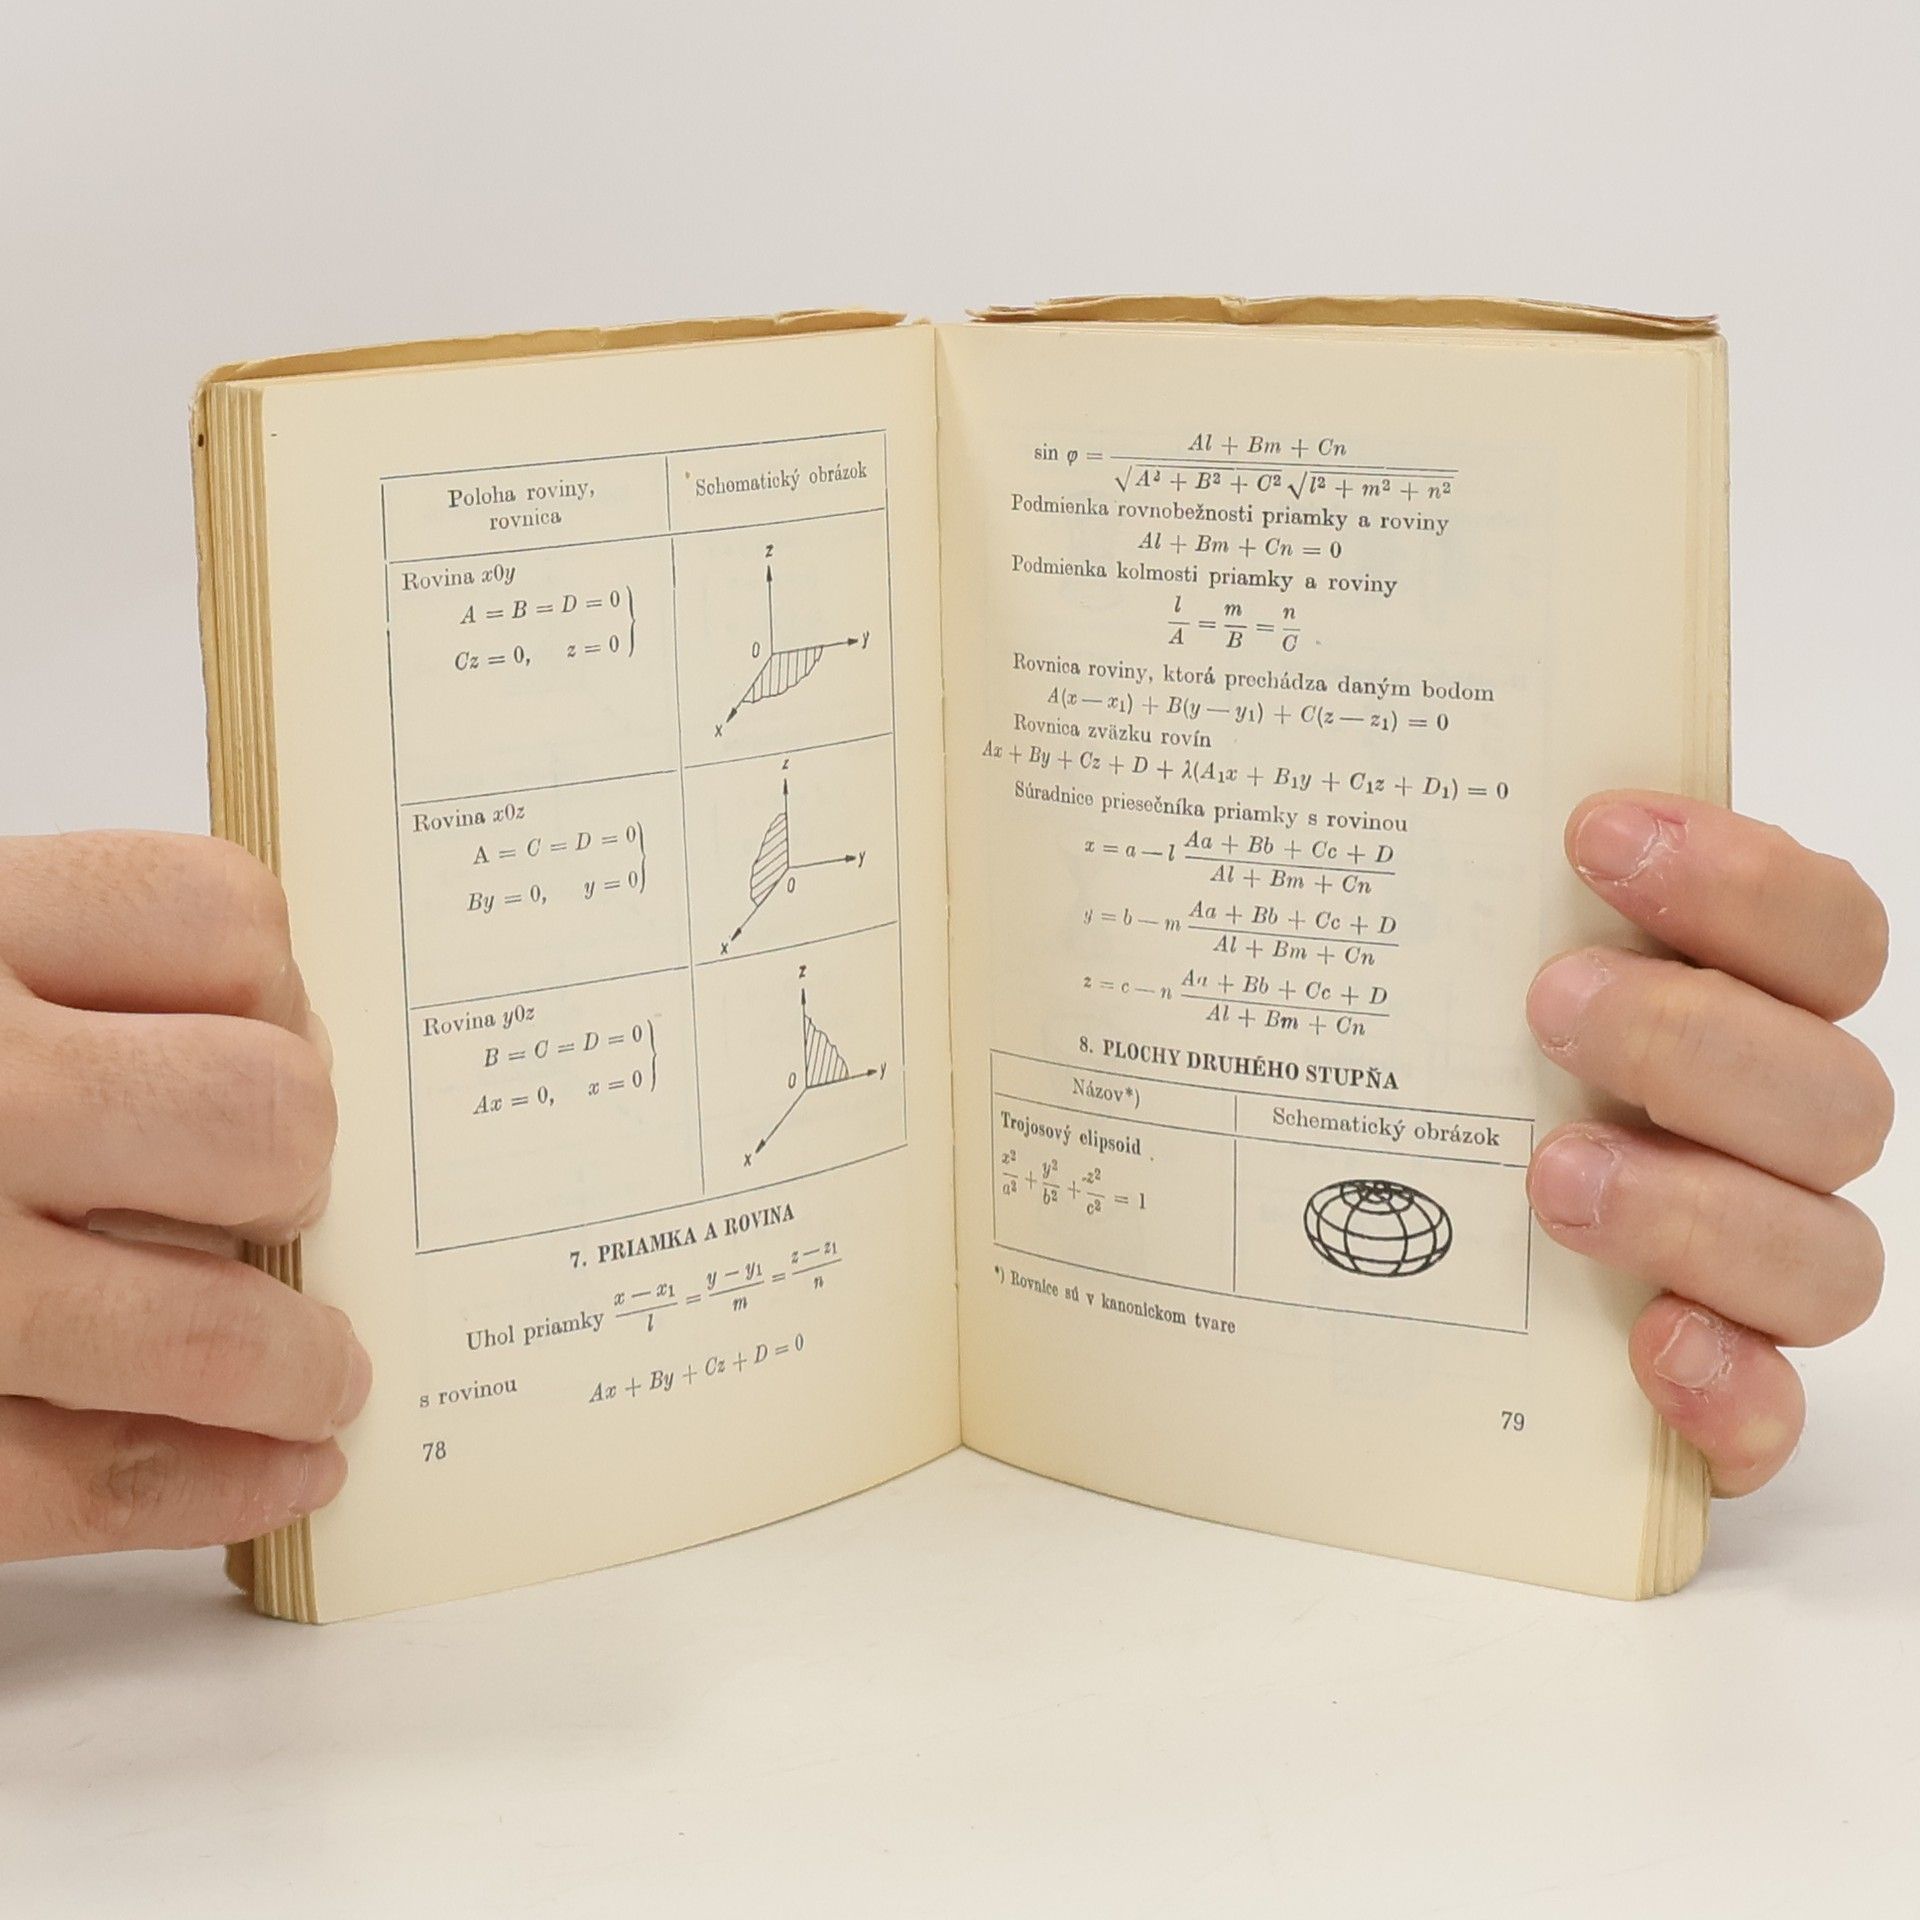 Poloha roviny,
rovnica
Schematický obrázok
Rovina x0y
A = B = D = 0
Cz = 0, z = 0
z
0
y
x
Rovina x0z
A = C = D = 0
By = 0, y = 0
z
y
0
x
Rovina y0z
B = C = D = 0
Ax = 0, x = 0
z
0
y
x
7. PRIAMKA A ROVINA
Uhol priamky (x — x₁)/l = (y — y₁)/m = (z — z₁)/n
s rovinou Ax + By + Cz + D = 0
78
sin φ = (Al + Bm + Cn)/(√(A² + B² + C²) √(l² + m² + n²))
Podmienka rovnobežnosti priamky a roviny
Al + Bm + Cn = 0
Podmienka kolmosti priamky a roviny
l/A = m/B = n/C
Rovnica roviny, ktorá prechádza daným bodom
A(x — x₁) + B(y — y₁) + C(z — z₁) = 0
Rovnica zväzku rovín
Ax + By + Cz + D + λ(A₁x + B₁y + C₁z + D₁) = 0
Súradnice priesečníka priamky s rovinou
x = a — l (Aa + Bb + Cc + D)/(Al + Bm + Cn)
y = b — m (Aa + Bb + Cc + D)/(Al + Bm + Cn)
z = c — n (Aa + Bb + Cc + D)/(Al + Bm + Cn)
8. PLOCHY DRUHÉHO STUPŇA
Názov*)
Schematický obrázok
Trojosový elipsoid
x²/a² + y²/b² + z²/c² = 1
*) Rovnice sú v kanonickom tvare
79